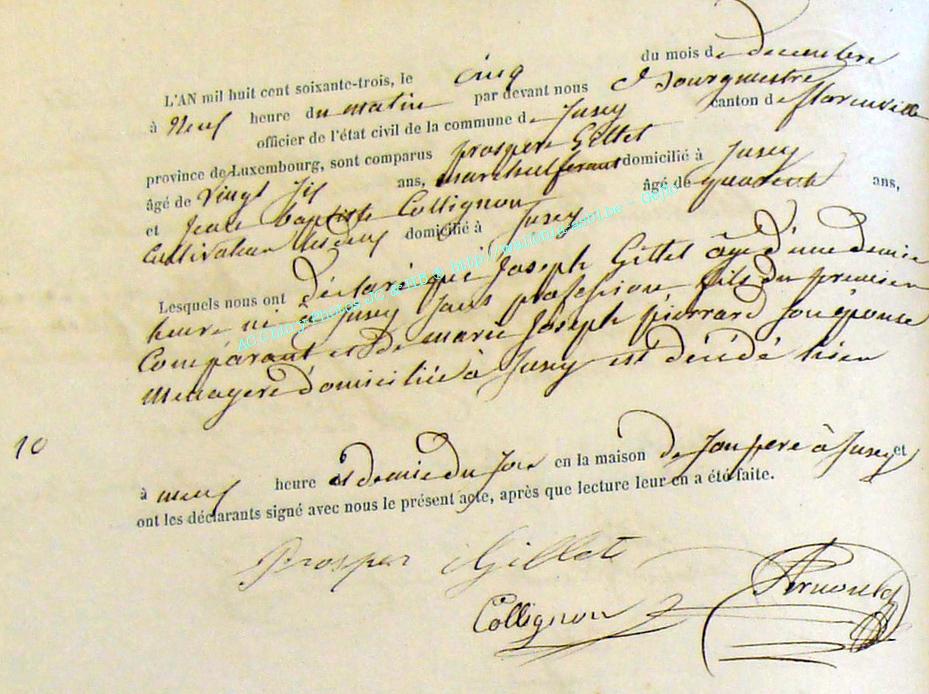 L'AN mil huit cent soixante-trois, le cinq du mois de decembre
à Neuf heure du matin par devant nous Bourgmestre
officier de l'état civil de la commune de Jusey canton de florenville
province de Luxembourg, sont comparus prosper Gillet
âgé de Vingt Six ans, marechal ferant domicilié à Jusey
et Jean baptiste Collignon âgé de quarente ans,
Cultivateur les deux domicilié à Jusey
Lesquels nous ont déclaré que Joseph Gillet âgé d'une demie
heure né à Jusey Sans profession fils du premier
Comparant et de marie Joseph pierrard son épouse
menagere domiciliée à Jusey est décédé hier
10
à neuf heure et demie du Soir en la maison de Son pere à Jusey et
ont les déclarants signé avec nous le présent acte, après que lecture leur en a été faite.
Prosper Gillet
Collignon